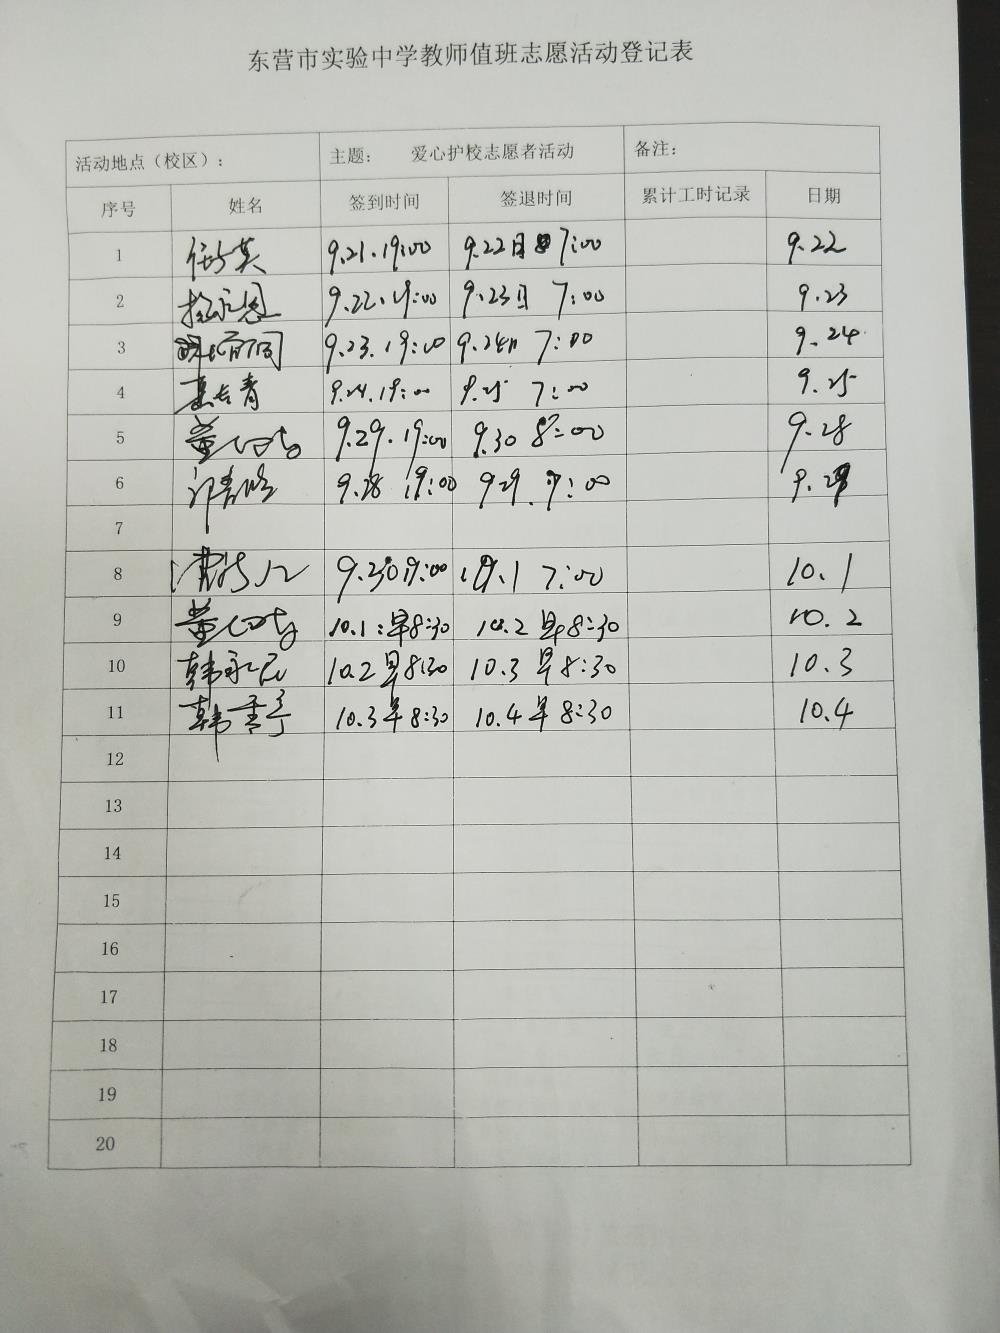 东营市实验中学教师值班志愿活动登记表
活动地点（校区）： 主题： 爱心护校志愿者活动 备注：
序号 姓名 签到时间 签退时间 累计工时记录 日期
1 9.21.19:00 9.22日 7:00 9.22
2 9.22.19:00 9.23日 7:00 9.23
3 9.23.19:00 9.24日 7:00 9.24
4 9.24.19:00 9.25 7:00 9.25
5 9.29.19:00 9.30 8:00 9.28
6 9.28 19:00 9.29. 7:00 9.29
7
8 9.30 19:00 10.1 7:00 10.1
9 10.1:早8:30 10.2 早8:30 10.2
10 韩永民 10.2早8:30 10.3 早8:30 10.3
11 10.3早8:30 10.4早8:30 10.4
12
13
14
15
16
17
18
19
20